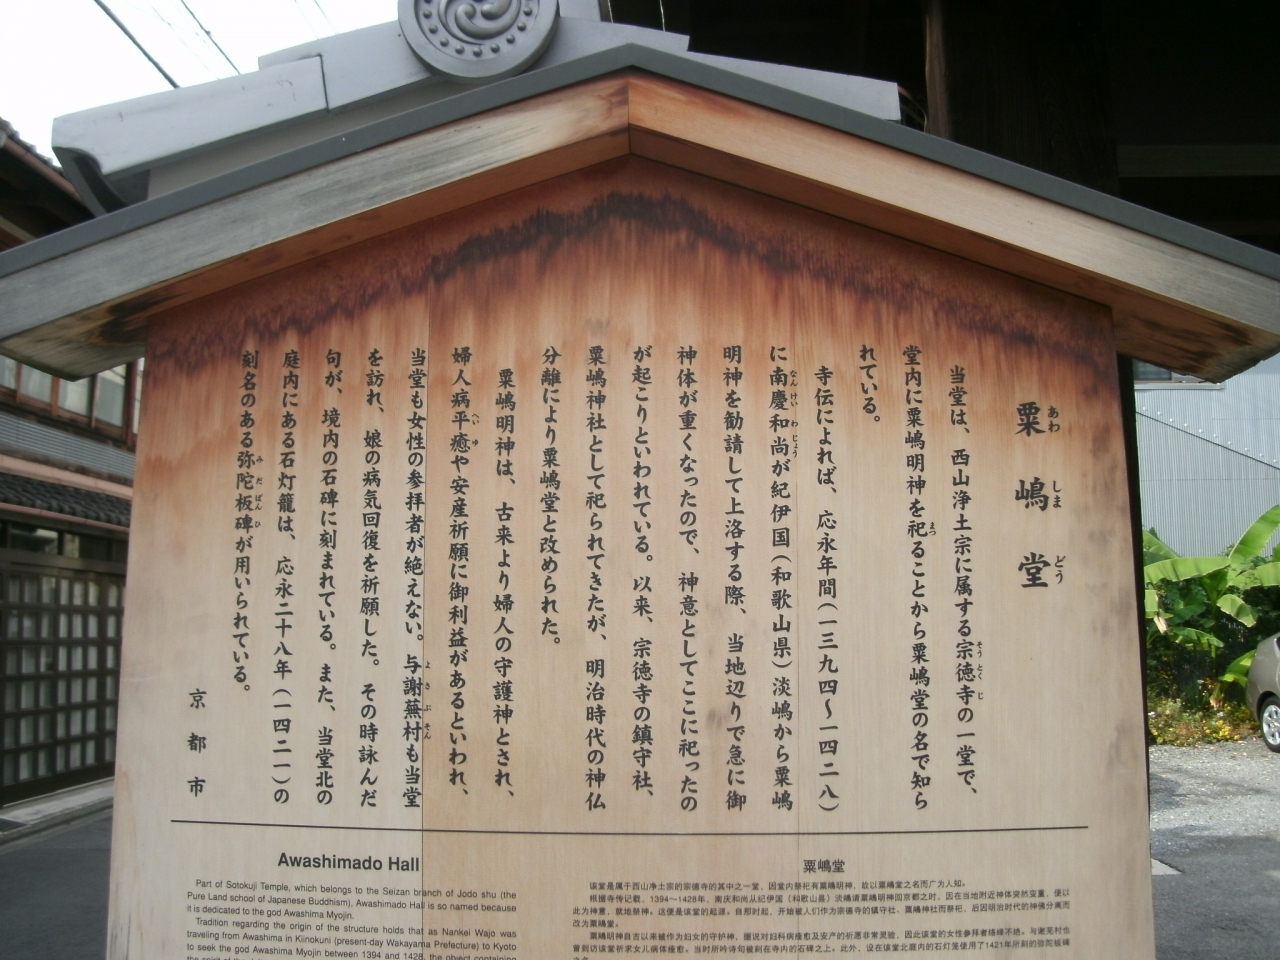 粟嶋堂
あわ しま どう
当堂は、西山浄土宗に属する宗徳寺の一堂で、
そうとくじ
堂内に粟嶋明神を祀ることから粟嶋堂の名で知ら
まつ
れている。
寺伝によれば、応永年間(一三九四〜一四二八)
に南慶和尚が紀伊国(和歌山県)淡嶋から粟嶋
なんけい わじょう
明神を勧請して上洛する際、当地辺りで急に御
神体が重くなったので、神意としてここに祀ったの
が起こりといわれている。以来、宗徳寺の鎮守社、
粟嶋神社として祀られてきたが、明治時代の神仏
分離により粟嶋堂と改められた。
粟嶋明神は、古来より婦人の守護神とされ、
婦人病平癒や安産祈願に御利益があるといわれ、
へいゆ
当堂も女性の参拝者が絶えない。与謝蕪村も当堂
よさぶそん
を訪れ、娘の病気回復を祈願した。その時詠んだ
句が、境内の石碑に刻まれている。また、当堂北の
庭内にある石灯籠は、応永二十八年(一四二一)の
刻名のある弥陀板碑が用いられている。
みだばんひ
京都市
Awashimado Hall
Part of Sotokuji Temple, which belongs to the Seizan branch of Jodo shu (the
Pure Land school of Japanese Buddhism), Awashimado Hall is so named because
it is dedicated to the god Awashima Myojin.
Tradition regarding the origin of the structure holds that as Nankei Wajo was
traveling from Awashima in Kiinokuni (present-day Wakayama Prefecture) to Kyoto
to seek the god Awashima Myojin between 1394 and 1428, the object containing
粟嶋堂
该堂是属于西山净土宗的宗德寺的其中之一堂，因堂内祭祀有粟嶋明神，故以粟嶋堂之名而广为人知。
根据寺传记载，1394～1428年，南庆和尚从纪伊国（和歌山县）淡嶋请粟嶋明神回京都之时，因在当地附近神体突然变重，便以
此为神意，就地祭神。这便是该堂的起源。自那时起，开始被人们作为宗德寺的镇守社、粟嶋神社而祭祀，后因明治时代的神佛分离而
改为粟嶋堂。
粟嶋明神自古以来被作为妇女的守护神，据说对妇科病痊愈及安产的祈愿非常灵验，因此该堂的女性参拜者络绎不绝。与谢芜村也
曾到访该堂祈求女儿病体痊愈。当时所吟诗句被刻在寺内的石碑之上。此外，设在该堂北庭内的石灯笼使用了1421年所刻的弥陀板碑